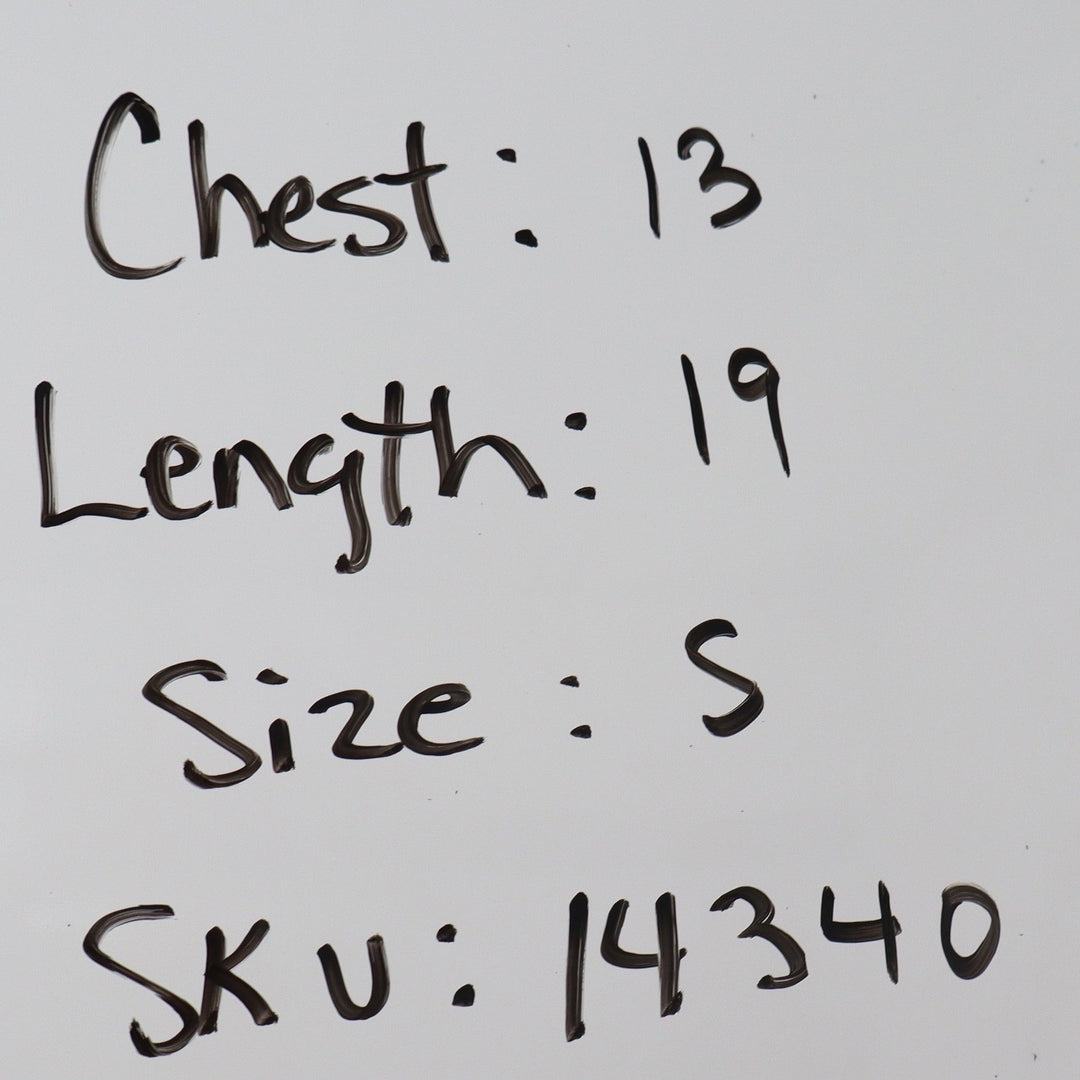 Chest: 13
Length: 19
Size: S
SKU: 14340